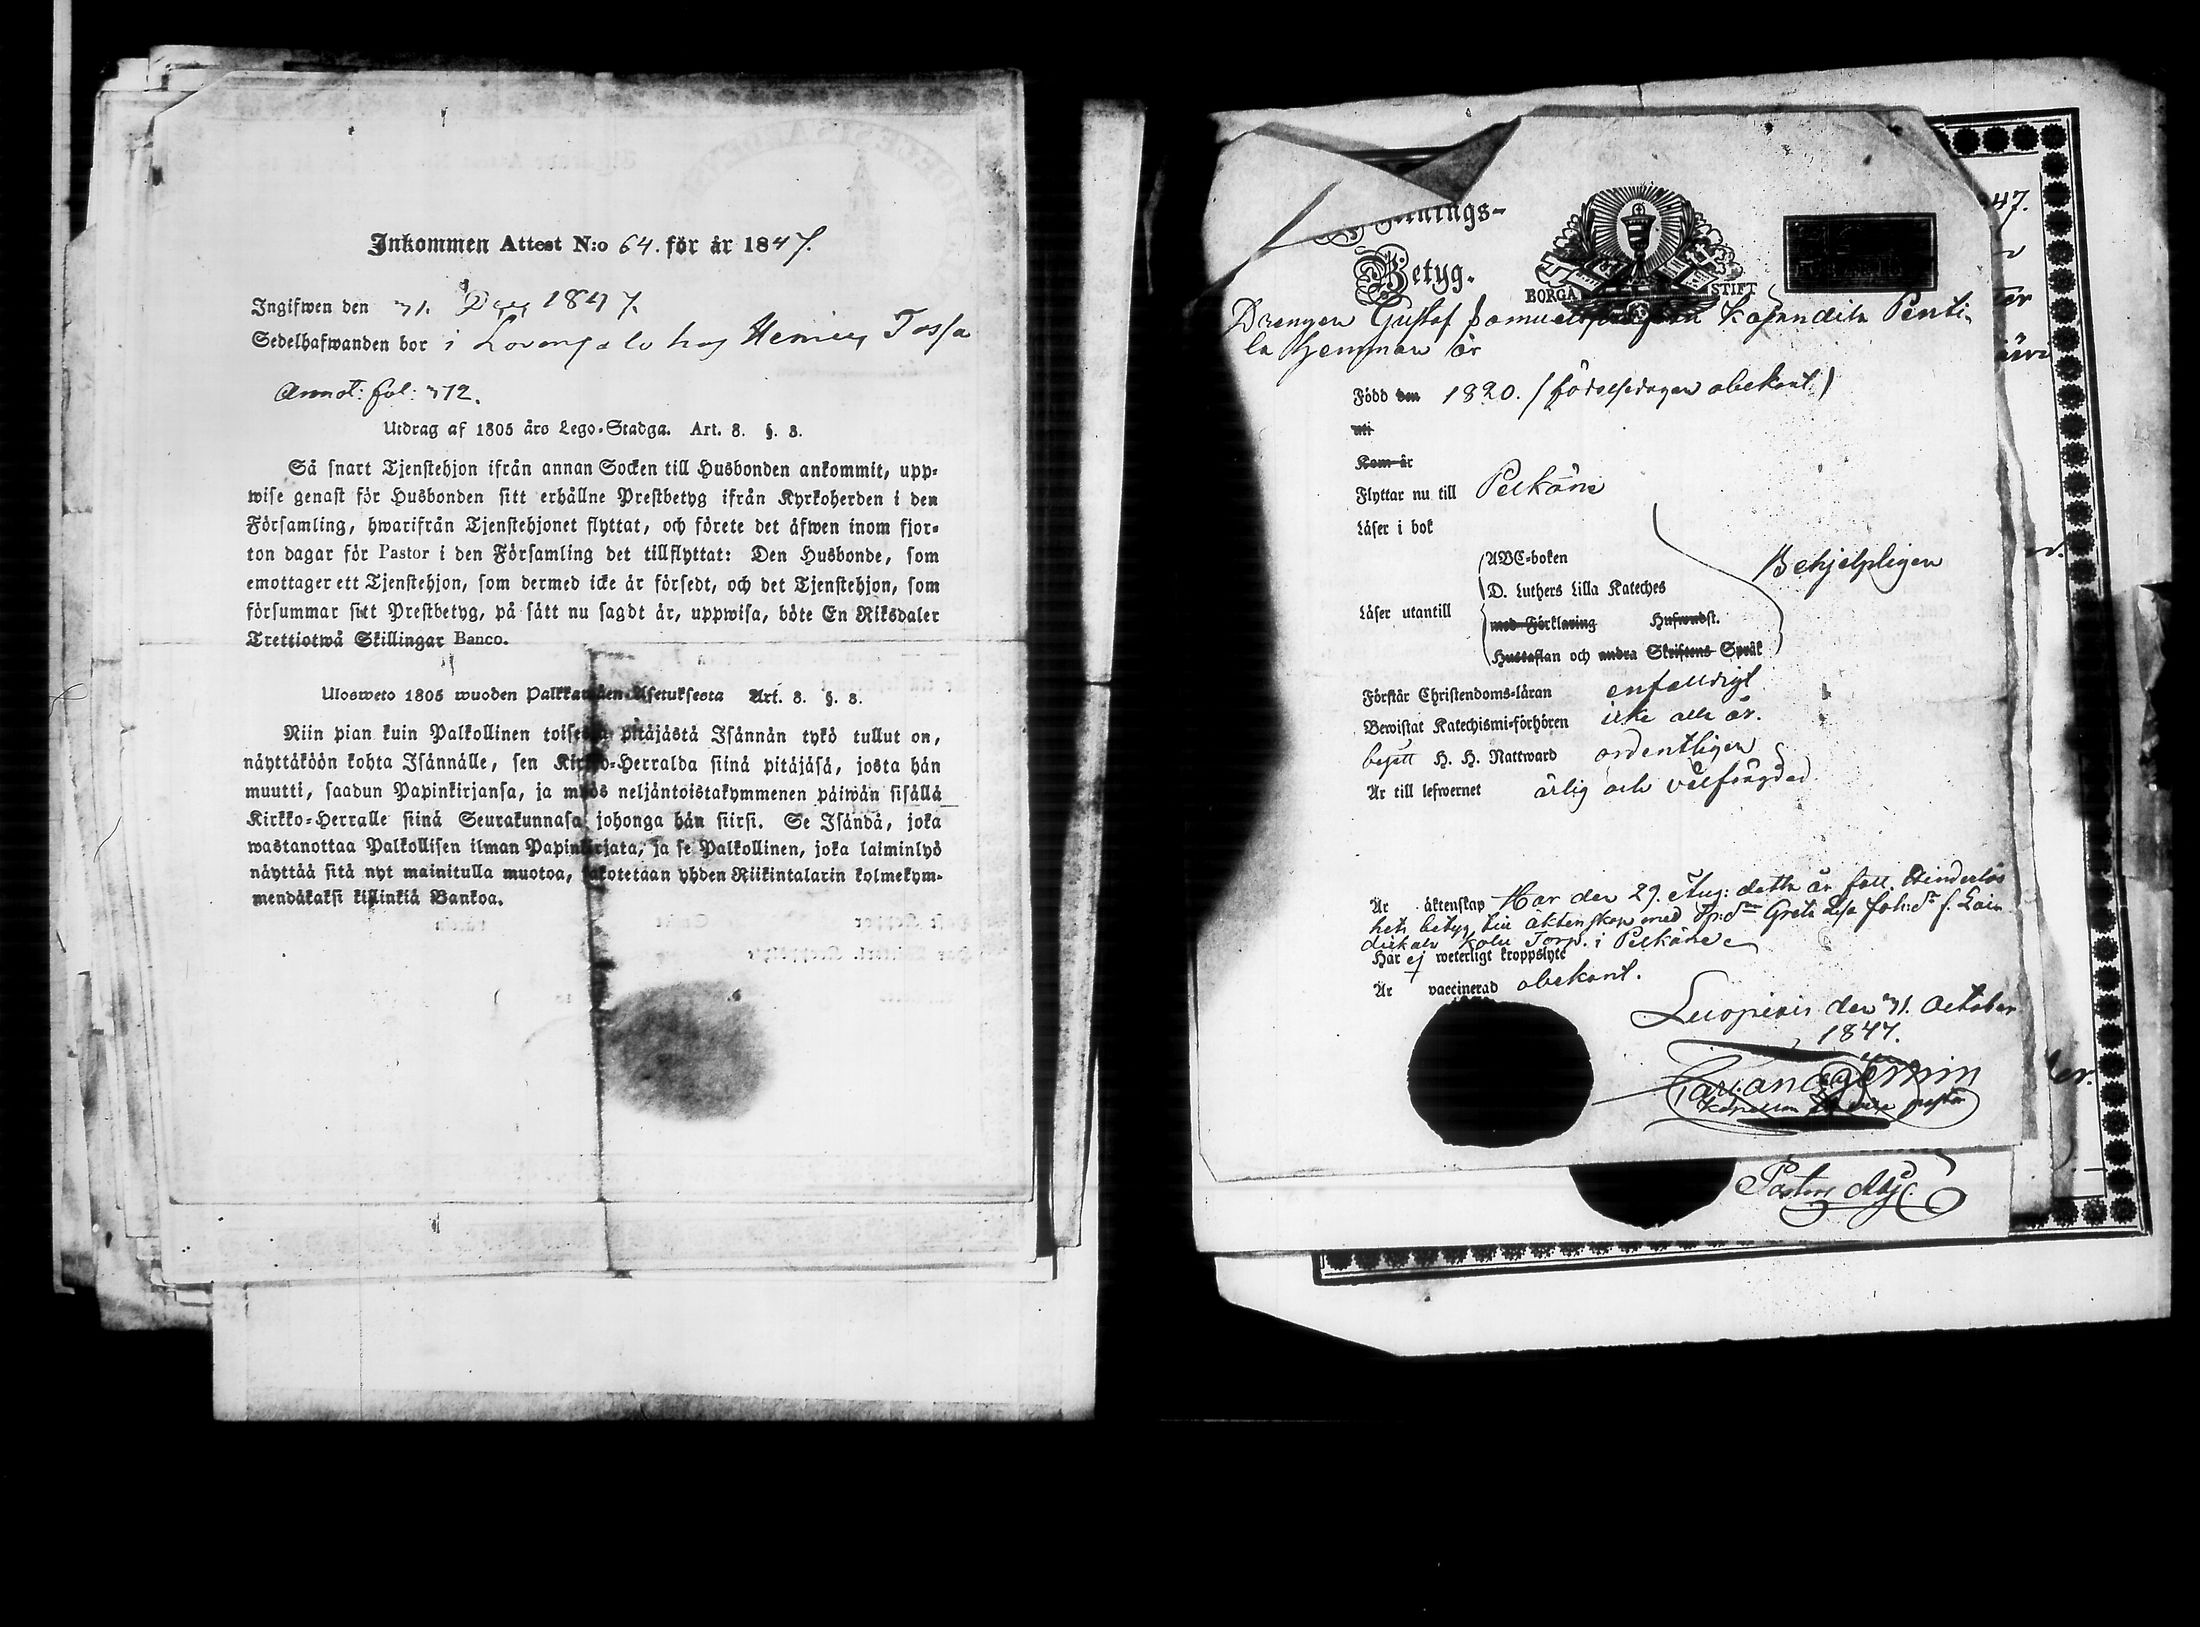 Inkommen Attest N:o 64. för år 1847.
Ingifwen den 31. 1847.
Sedelhafwanden bor i hos
Annot: fol: 312.
Utdrag af 1805 års Lego-Stadga. Art. 8. §. 3.
Så snart Tjenstehjon ifrån annan Socken till Husbonden ankommit, upp-
wise genast för Husbonden sitt erhållne Prestbetyg ifrån Kyrkoherden i den
Församling, hwarifrån Tjenstehjonet flyttat, och förete det åfwen inom fjor-
ton dagar för Pastor i den Församling det tillflyttat: Den Husbonde, som
emottager ett Tjenstehjon, som dermed icke är försedt, och det Tjenstehjon, som
försummar sitt Prestbetyg, på sätt nu sagdt är, uppwisa, böte En Riksdaler
Trettiotwå Skillingar Banco.
Ulosweto 1805 wuoden Palkkawäen-Asetuksesta Art. 8. §. 3.
Niin pian kuin Palkollinen toisesta pitäjästä Isännän tykö tullut on,
näyttäköön kohta Isännälle, sen Kirkko-Herralda siinä pitäjäsä, josta hän
muutti, saadun Papinkirjansa, ja myös neljäntoistakymmenen päiwän sisällä
Kirkko-Herralle siinä Seurakunnasa johonga hän siirsi. Se Isändä, joka
wastanottaa Palkollisen ilman Papinkirjata, ja se Palkollinen, joka laiminlyö
näyttää sitä nyt mainitulla muotoa, sakotetaan yhden Riikintalarin kolmekym-
mendäkaksi killinkiä Bankoa.
Betyg.
BORGÅ STIFT
Drengen Gustaf Penti-
la hemman är
Född den 1820. (födelsedagen obekant)
uti
Kom år
Flyttar nu till Pelkäne
Läser i bok
ABC-boken
D. Luthers Lilla Kateches
Behjelpligen
Läser utantill
med Förklaring Hufwudst.
Hustaflan och andra Skriftens Språk
Förstår Christendoms-läran enfaldigt
Bewistat Katechismi-förhören icke alla år.
begått H. H. Nattward ordentligen
Är till lefwernet ärlig och välfrägdad
Är äktenskap Har den 29. Aug: detta år fått Hinderlös
hets betyg till äktenskap med Greta Lisa Joh:dr f.
Torp. i Pelkäne
Har ej weterligt kroppslyte
Är vaccinerad obekant.
Luopiois den 31. October
1847.